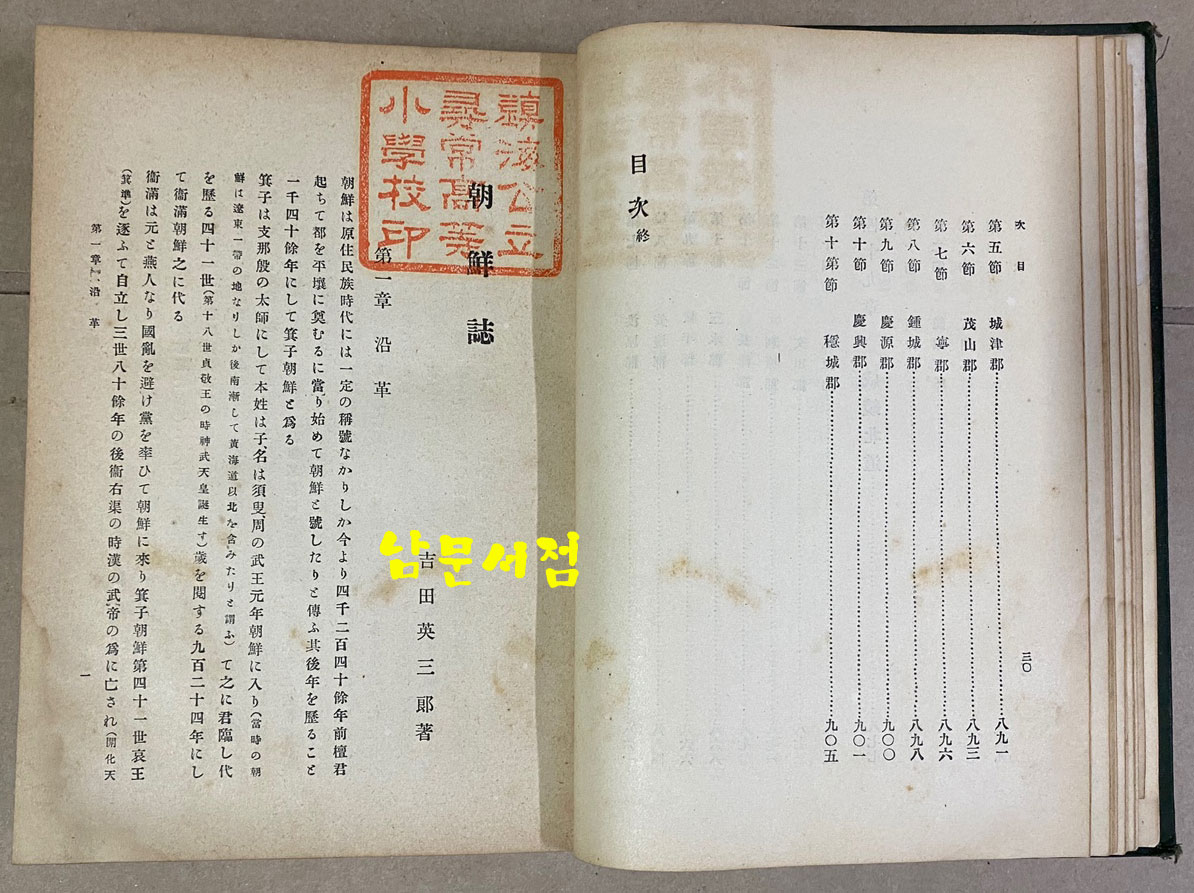 次目
第五節 城津郡………八九一
第六節 茂山郡………八九三
第七節 會寧郡………八九六
第八節 鍾城郡………八九八
第九節 慶源郡………九〇〇
第十節 慶興郡………九〇一
第十第節 穩城郡………九〇五
目次終
三〇
鎭海公立
尋常高等
小學校印
朝鮮誌
吉田英三郞著
第一章 沿革
朝鮮は原住民族時代には一定の稱號なかりしか今より四千二百四十餘年前檀君
起ちて都を平壤に奠むるに當り始めて朝鮮と號したりと傳ふ其後年を歷ること
一千四十餘年にして箕子朝鮮と爲る
箕子は支那殷の太師にして本姓は子、名は須臾、周の武王元年朝鮮に入り(當時の朝
鮮は遼東一帶の地なりしか後南漸して黃海道以北を含みたりと謂ふ)て之に君臨し代
を歷る四十一世(第十八世貞敬王の時神武天皇誕生す)歲を閱する九百二十四年にし
て衞滿朝鮮之に代る
衞滿は元と燕人なり國亂を避け黨を率ひて朝鮮に來り箕子朝鮮第四十一世哀王
(箕準)を逐ふて自立し三世八十餘年の後衞右渠の時漢の武帝の爲に亡され(開化天
第一章 沿革
一
남문서점